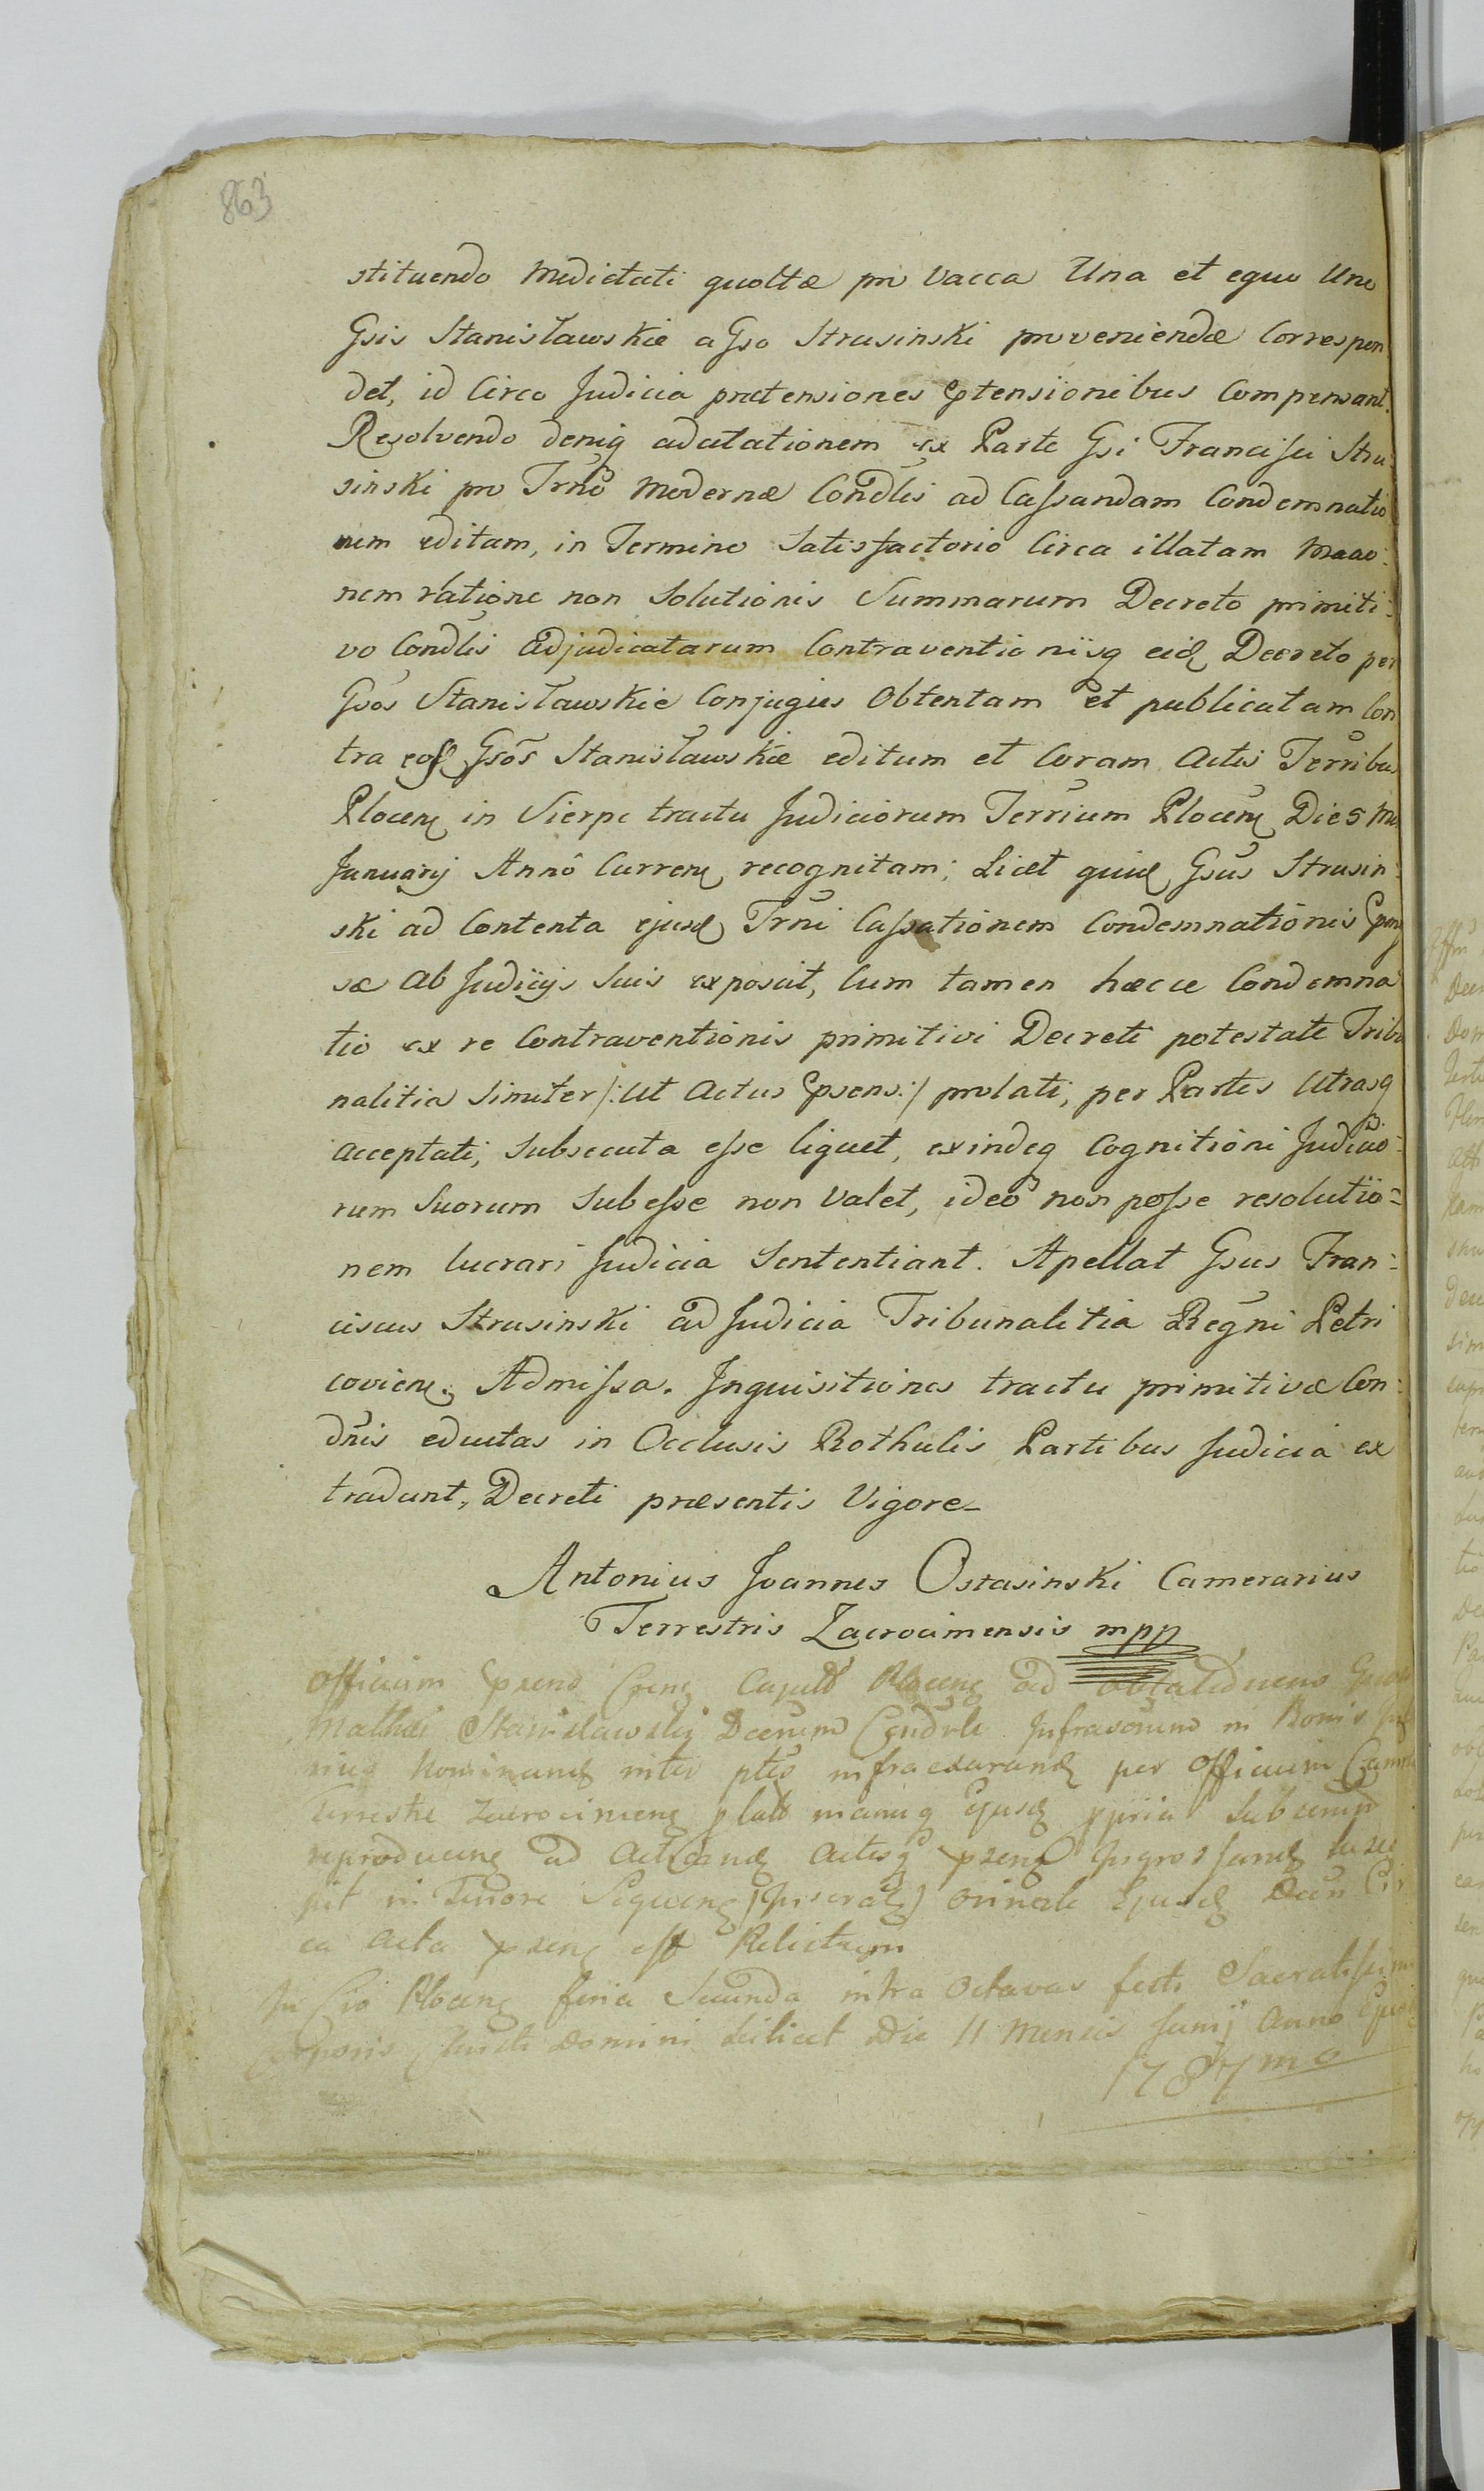 863
stituendo Medietati quottæ pro Vacca Una et equo Uno
Gsis Stanisławskie a Gso Strusinski proveniendæ Correspon
det, id Circo Judicia prætensiones Ptensionibus Compensant.
Resolvendo deniq adcitationem ex Parte Gsi Francisci Stru
sinski pro Trno Modernæ Condlis ad Cassandam Condemnatio
nem editam, in Termino Satisfactorio Circa illatam
nem ratione non Solutionis Summarum Decreto primiti:
vo Condlis Adjudicatarum Contraventionisq eid Decreto per
Gsos Stanisławskie Conjuges Obtentam et publicatam Con
tra eosd Gsos Stanisławskie editum et Coram Actis Terribus
Plocen in Sierpc tractu Judiciorum Terrium Plocen Die 5 Ms
Januarij Anno Curren recognitam; Licet quid Gsus Strusin:
ski ad Contenta ejusd Trni Cassationem Condemnationis
sæ ab Judicijs Suis exposcit, Cum tamen hæcce Condemna
tio ex re Contraventionis primitivi Decreti potestate Tribu
nalitia Simiter /: Ut Actus Psens :/ prolati, per Partes Utrasq
acceptati, Subsecuta esse liquet, exindeq Cognitioni Judicio:
rum Suorum Subesse non Valet, ideo non posse resolutio=
nem lucrari Judicia Sententiant. Apellat Gsus Fran:
ciscus Strusinski ad Judicia Tribunalitia Regni Petri
covien. Admissa. Inquisitiones tractu primitivæ Con:
dnis eductas in Occlusis Rothulis Partibus Judicia ex
tradunt, Decreti præsentis Vigore
Antonius Joannes Ostasinski Camerarius
Terrestris Zacrocimensis mpp
Officium Psens Cren Capitt Plocen ad
Mathæi Stanisławski Decrum Condrle Infrascrum in Bonis
inter ptes infraexarand per Officium
Terrestre Zacrocimen plati manuq Ejusd ppria Subscrip
reproducen ad Acticand Actisq psens Ingrossand susce
pit in Tenore Sequen Orinale Ejusd Decr
ca Acta psens est Relictum
In Cio Plocen feria Secunda intra Octavas festi Sacratissimi
Corporis Christi Domini Scilicet Die 11 Mensis Junij Anno
1787mo